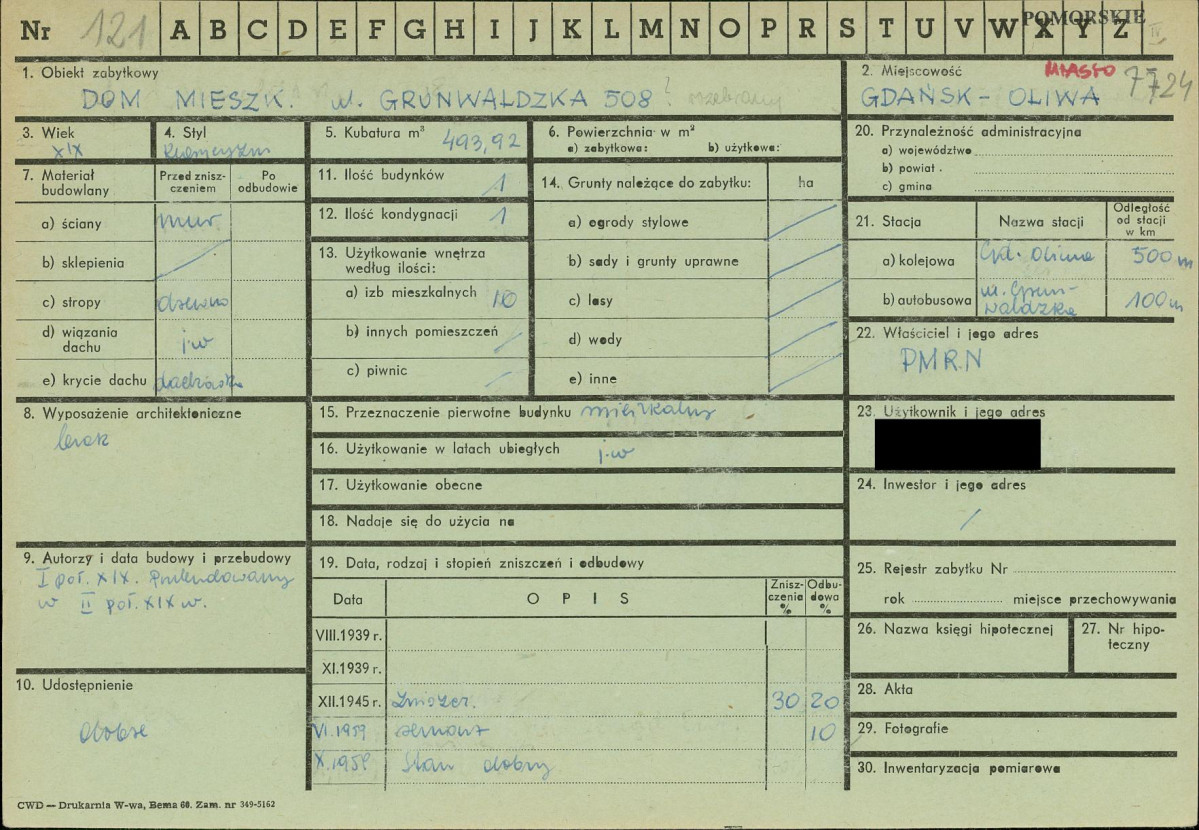 Nr 121 A B C D E F G H I J K L M N O P R S T U V W X Y Z
POMORSKIE
IV
1. Obiekt zabytkowy
DOM MIESZK. ul. GRUNWALDZKA 508 ? rozebrany
2. Miejscowość MIASTO 7724
GDAŃSK - OLIWA
3. Wiek
XIX
4. Styl
5. Kubatura m³ 493,92
6. Powierzchnia w m²
a) zabytkowa: b) użytkowa:
20. Przynależność administracyjna
a) województwo
b) powiat
c) gmina
7. Materiał budowlany
Przed zniszczeniem
Po odbudowie
a) ściany mur.
b) sklepienia /
c) stropy drewno
d) wiązania dachu j.w
e) krycie dachu dachówka
11. Ilość budynków 1
12. Ilość kondygnacji 1
13. Użytkowanie wnętrza
według ilości:
a) izb mieszkalnych 10
b) innych pomieszczeń /
c) piwnic /
14. Grunty należące do zabytku: ha
a) ogrody stylowe /
b) sady i grunty uprawne /
c) lasy /
d) wody /
e) inne /
21. Stacja
Nazwa stacji
Odległość
od stacji
w km
a) kolejowa Gd. Oliwa 500 m
b) autobusowa ul. Grun-
waldzka 100 m
22. Właściciel i jego adres
PMRN
8. Wyposażenie architektoniczne
brak
15. Przeznaczenie pierwotne budynku mieszkalny
16. Użytkowanie w latach ubiegłych j.w
17. Użytkowanie obecne
18. Nadaje się do użycia na
23. Użytkownik i jego adres
24. Inwestor i jego adres
/
9. Autorzy i data budowy i przebudowy
I poł. XIX. Przebudowany
w II poł. XIX w.
19. Data, rodzaj i stopień zniszczeń i odbudowy
Data
OPIS
Znisz-
czenia
%
Odbu-
dowa
%
VIII.1939 r.
XI.1939 r.
XII.1945 r. zniszcz. 30 20
VI.1959 remont 10
X.1959 Stan dobry
25. Rejestr zabytku Nr
rok miejsce przechowywania
26. Nazwa księgi hipotecznej
27. Nr hipo-
teczny
10. Udostępnienie
dobre
28. Akta
29. Fotografie
30. Inwentaryzacja pomiarowa
CWD — Drukarnia W-wa, Bema 60. Zam. nr 349-5162